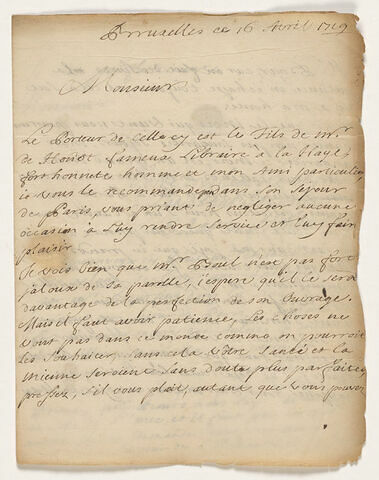 Bruxelles ce 16 Avril 1719
Monsieur
Le Porteur de celle cy est le fils de mr.
de Hondt fameux Libraire à la Haye,
fort honnete homme et mon Ami particulier,
je vous le recommande dans son sejour
de Paris, vous priant de negliger aucune
occasion à luy rendre service et luy faire
plaisir.
Je vois bien que mr. n'est pas fort
jaloux de sa parolle, j'espere qu'il le sera
davantage de la perfection de son Ouvrage.
Mais il faut avoir patience, Les choses ne
vont pas dans ce monde comme on pourroit
les souhaiter, sans cela votre santé et la
mienne seroient sans doute plus parfaites
pressez, s'il vous plait, autant que vous pouvez